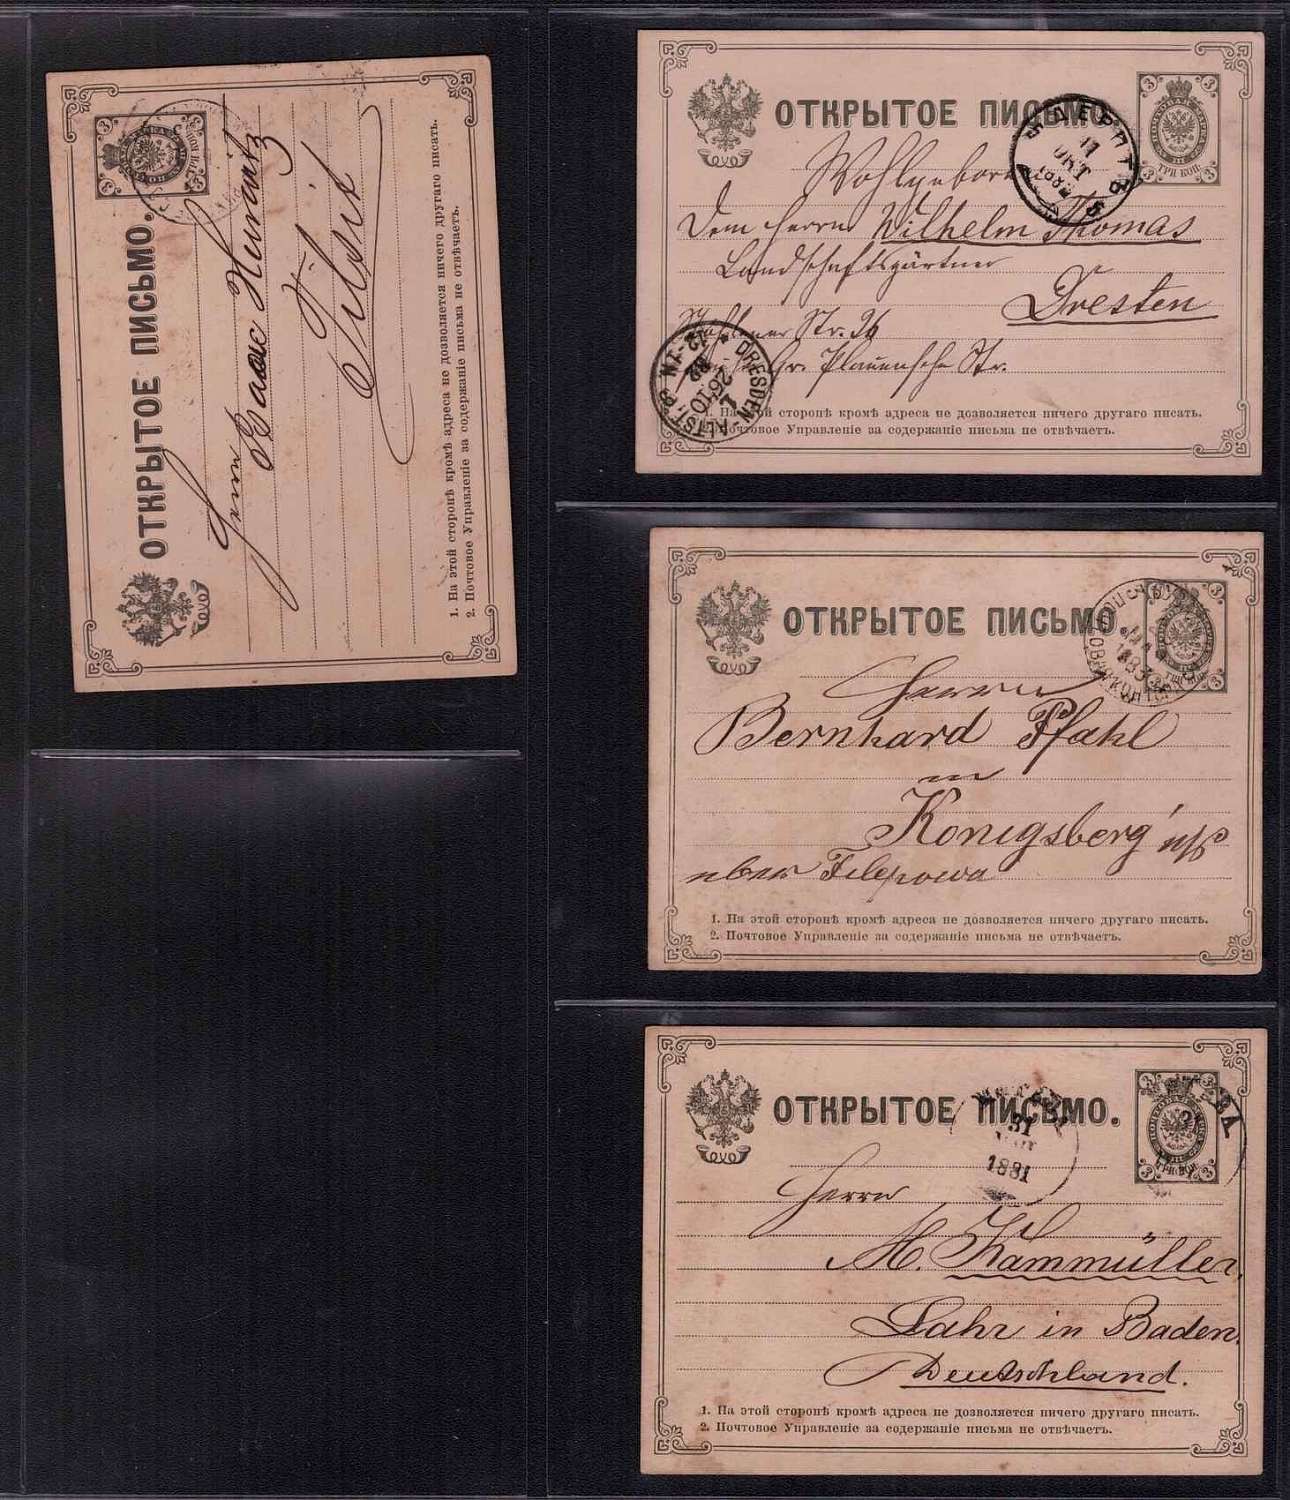 ОТКРЫТОЕ ПИСЬМО.
Herrn
Isaac Hurwitz
Tilsit
1. На этой сторонѣ кромѣ адреса не дозволяется ничего другаго писать.
2. Почтовое Управленіе за содержаніе письма не отвѣчаетъ.
3 3 3 3
ОТКРЫТОЕ ПИСЬМО.
3 3 3 3
ТРИ КОП.
ДЕРПТЪ
11
ОКТ
1887
Wohlgeboren
Dem Herrn Wilhelm Thomas
Landschaftsgärtner
Dresden
Str. 26
Gr. Plauensche Str.
DRESDEN-ALTST.
26 10
12-1N
1. На этой сторонѣ кромѣ адреса не дозволяется ничего другаго писать.
2. Почтовое Управленіе за содержаніе письма не отвѣчаетъ.
ОТКРЫТОЕ ПИСЬМО.
3 3 3
1883
Herrn
Bernhard Pfahl
in
Königsberg i/Pr
über
1. На этой сторонѣ кромѣ адреса не дозволяется ничего другаго писать.
2. Почтовое Управленіе за содержаніе письма не отвѣчаетъ.
ОТКРЫТОЕ ПИСЬМО.
3 3 3
31
1881
Herrn
M. Kammüller,
Lahr in Baden.
Deutschland.
1. На этой сторонѣ кромѣ адреса не дозволяется ничего другаго писать.
2. Почтовое Управленіе за содержаніе письма не отвѣчаетъ.